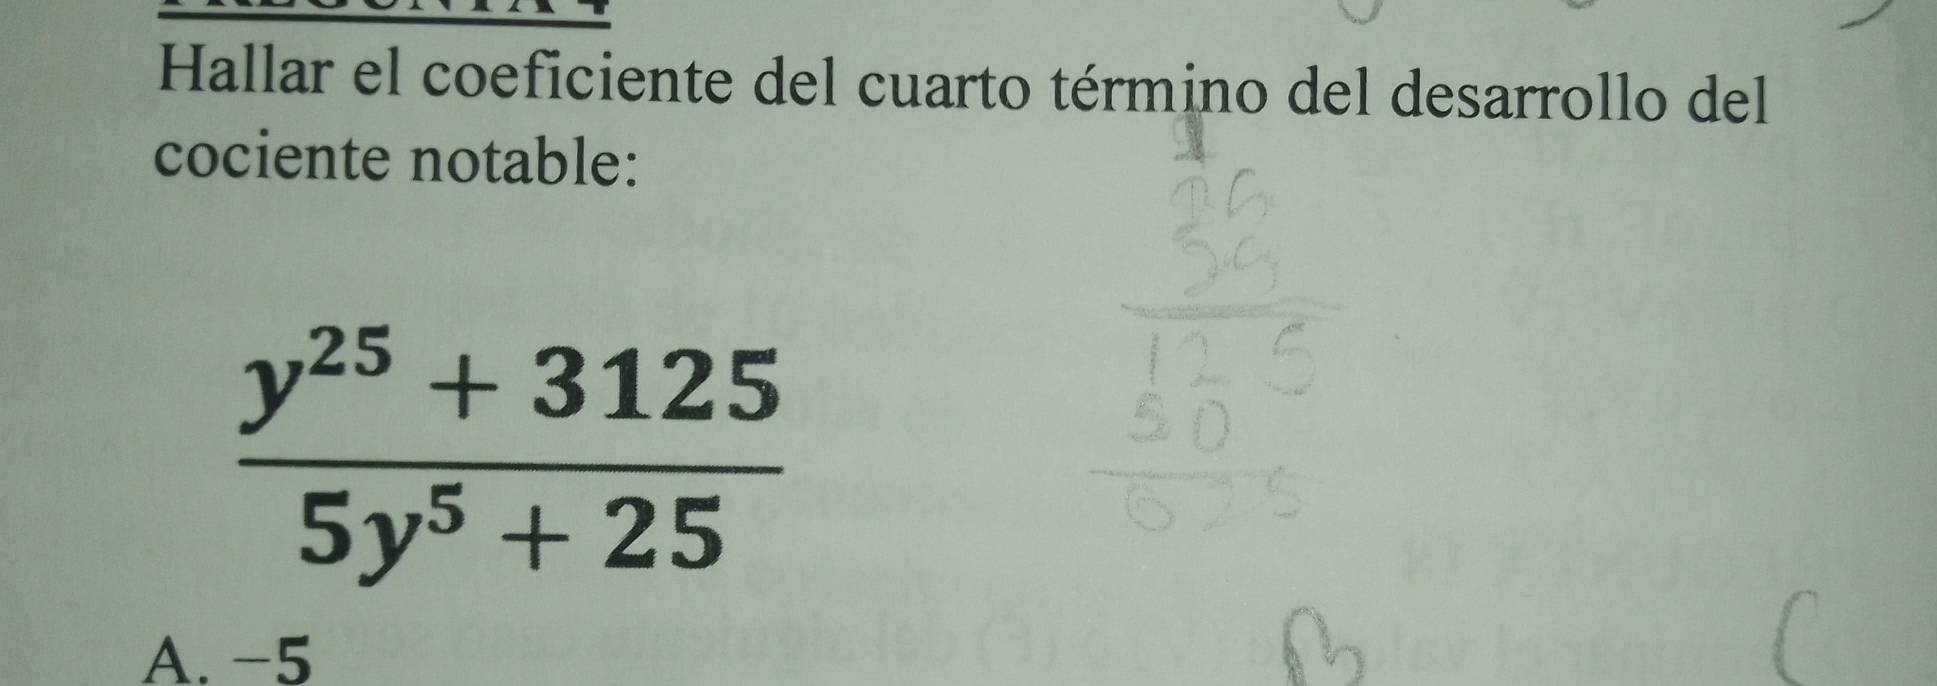 Hallar el coeficiente del cuarto término del desarrollo del
cociente notable:
y^25 + 3125
5y^5 + 25
125
50
625
A. −5